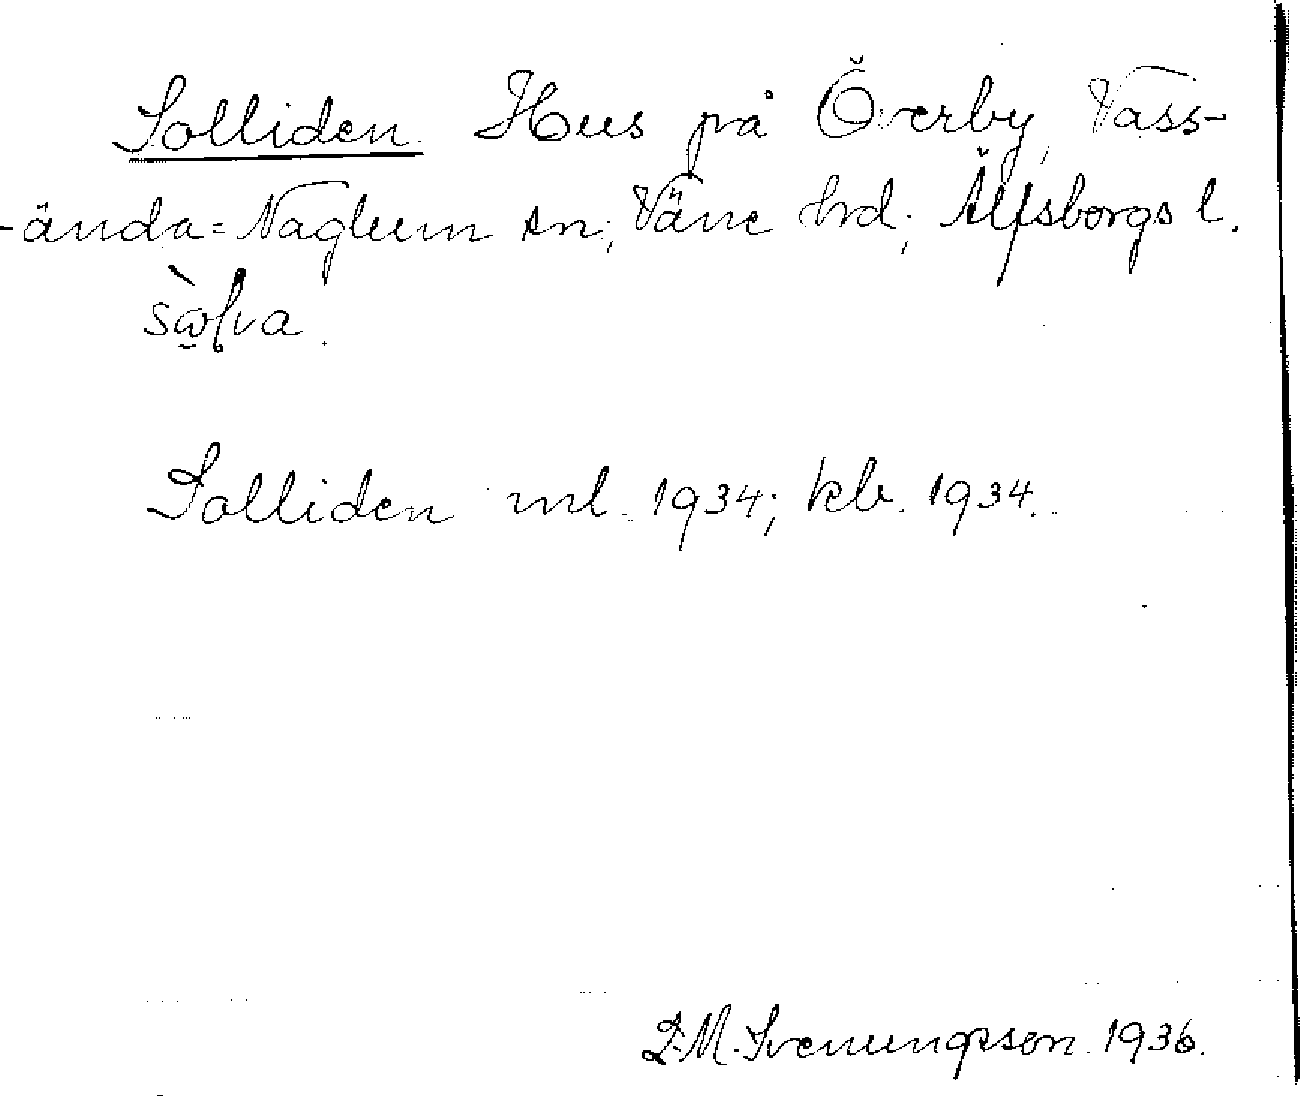 Solliden Hus på Överby, Vass-
-ända=Naglum sn; Väne hrd; Älfsborgs l.
Solliden ml. 1934; kb. 1934.
D.M. Svenungsson. 1936.